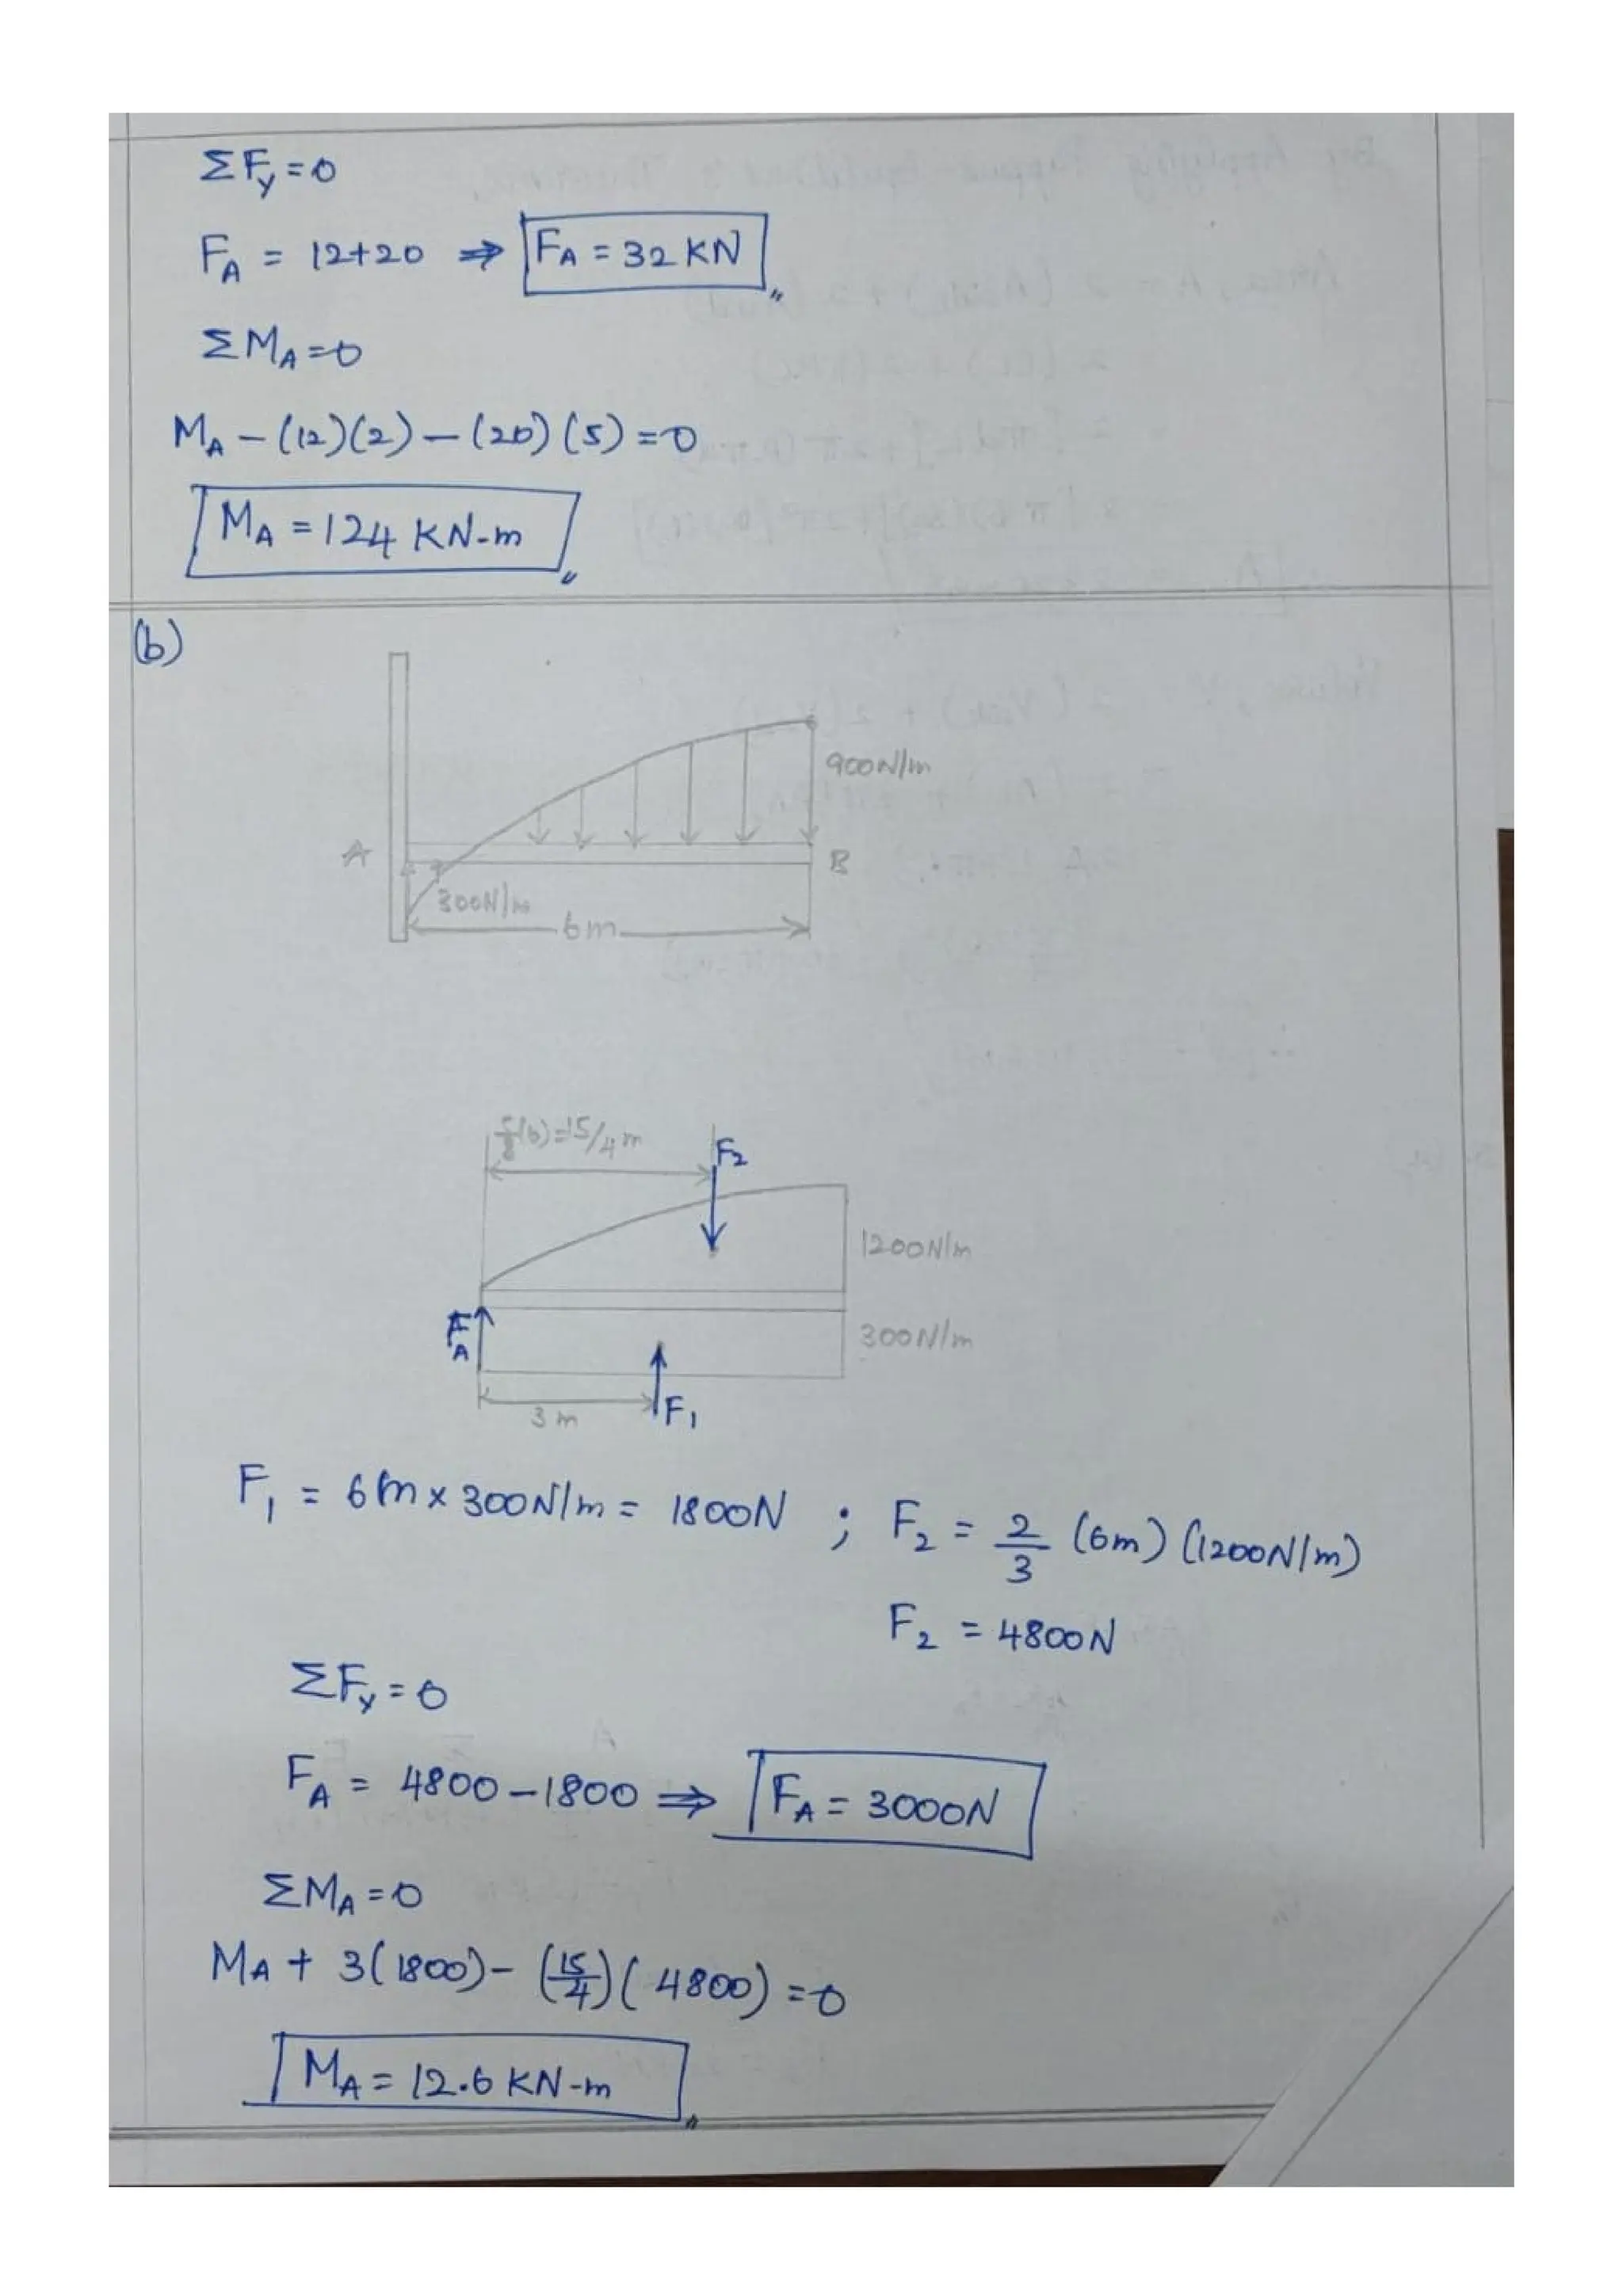 ΣFy=0
FA = 12+20 ⇒ FA = 32 KN
ΣMA=0
MA – (12)(2) – (20)(5)=0
MA = 124 KN-m
(b)
900N/m
A
B
300N/m
6m
5/8(6)=15/4 m
F2
1200N/m
FA
300N/m
3 m
F1
F1 = 6m x 300N/m = 1800N ; F2 = 2/3 (6m) (1200N/m)
F2 = 4800N
ΣFy=0
FA = 4800-1800 ⇒ FA = 3000N
ΣMA=0
MA + 3(1800)- (15/4)(4800)=0
MA = 12.6 KN-m